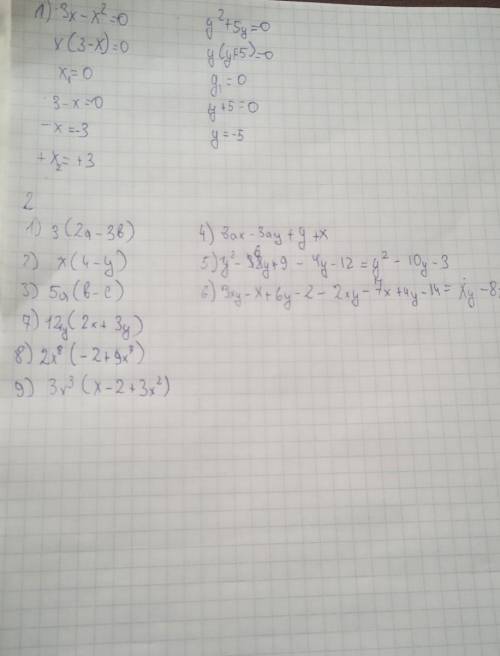 1) 3x - x² = 0
x (3 - x) = 0
x₁ = 0
3 - x = 0
- x = -3
+ x₂ = +3
y² + 5y = 0
y (y + 5) = 0
y₁ = 0
y + 5 = 0
y = -5
2
1) 3 (2a - 3b)
2) x (4 - y)
3) 5a (b - c)
7) 12y (2x + 3y)
8) 2x⁸ (-2 + 9x⁸)
9) 3x³ (x - 2 + 3x²)
4) 3ax - 3ay + y + x
5) y² - 6y + 9 - 4y - 12 = y² - 10y - 3
6) 3xy - x + 6y - 2 - 2xy - 7x + 4y - 14 = xy - 8